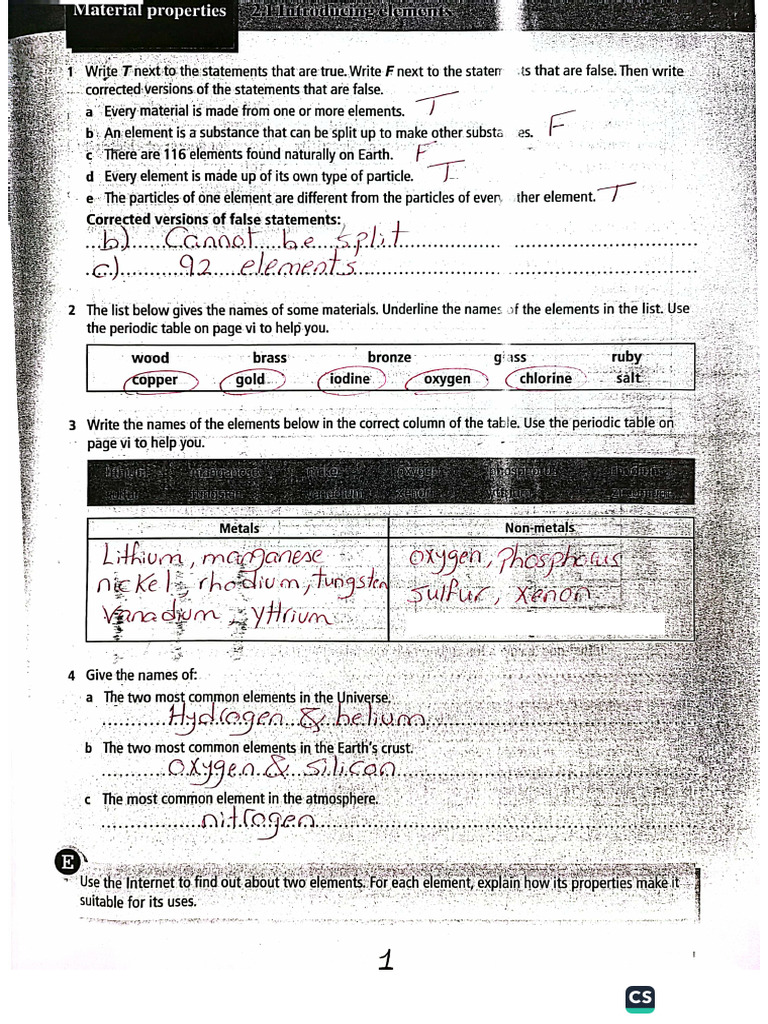 Material properties 2.1 Introducing elements
1 Write T next to the statements that are true. Write F next to the statem ts that are false. Then write
corrected versions of the statements that are false.
a Every material is made from one or more elements. T
b An element is a substance that can be split up to make other substa es. F
c There are 116 elements found naturally on Earth. F
d Every element is made up of its own type of particle. T
e The particles of one element are different from the particles of ever ther element. T
Corrected versions of false statements:
b) Cannot be split
c) 92 elements
2 The list below gives the names of some materials. Underline the names of the elements in the list. Use
the periodic table on page vi to help you.
wood brass bronze glass ruby
copper gold iodine oxygen chlorine salt
3 Write the names of the elements below in the correct column of the table. Use the periodic table on
page vi to help you.
lithium manganese nickel oxygen phosphorus rhodium
sulfur tungsten vanadium xenon yttrium
Metals Non-metals
Lithium, manganese oxygen, phosphorus
nickel, rhodium, tungsten sulfur, xenon
Vanadium, yttrium
4 Give the names of:
a The two most common elements in the Universe.
Hydrogen & helium
b The two most common elements in the Earth's crust.
oxygen & silicon
c The most common element in the atmosphere.
nitrogen
E
Use the Internet to find out about two elements. For each element, explain how its properties make it
suitable for its uses.
1
CS